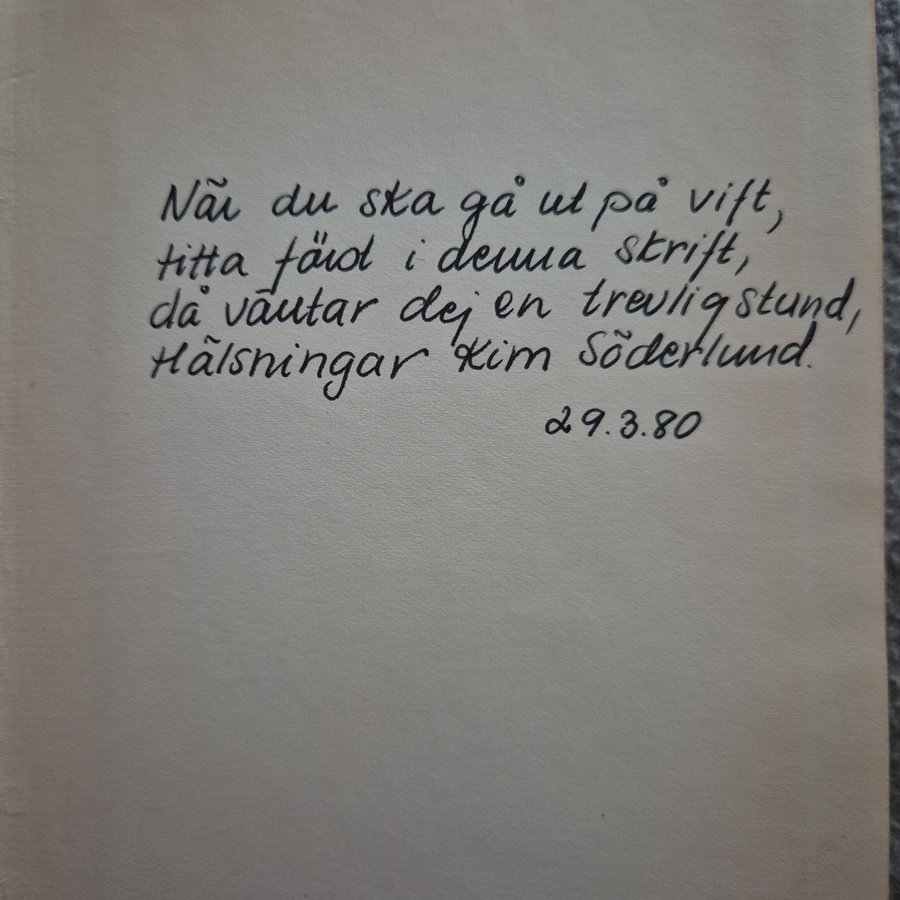 När du ska gå ut på vift,
titta först i denna skrift,
då väntar dej en trevlig stund,
Hälsningar Kim Söderlund.
29.3.80